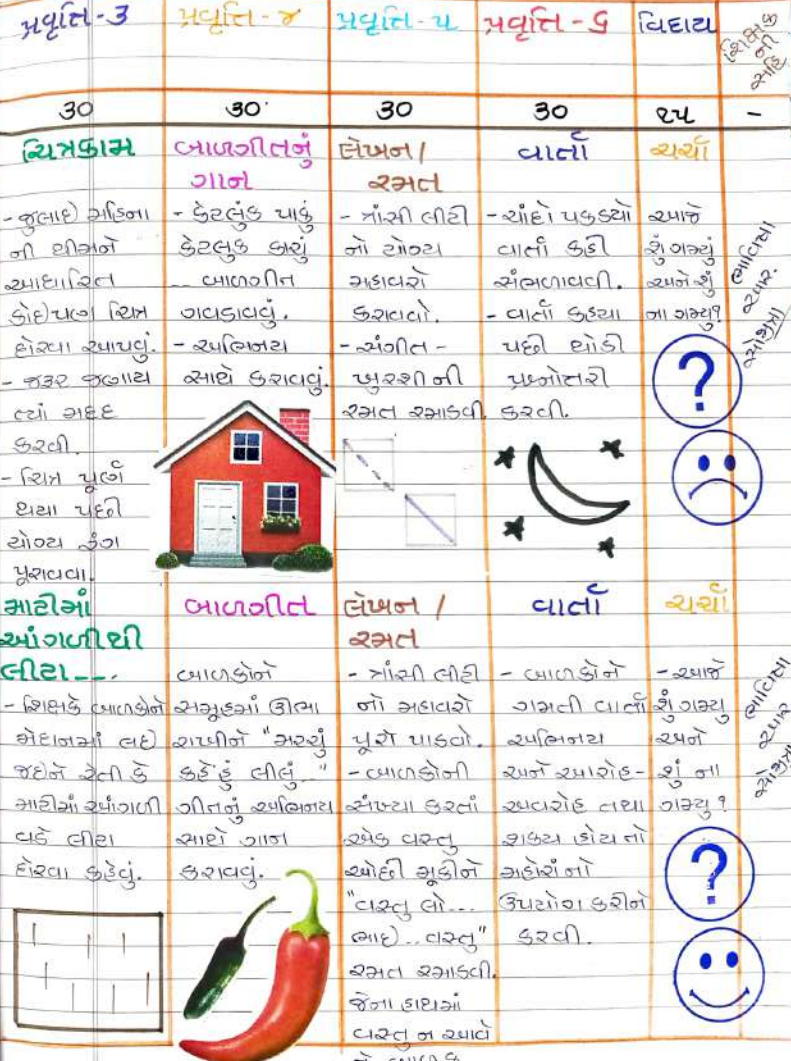 પ્રવૃત્તિ-૩
પ્રવૃત્તિ-૪
પ્રવૃત્તિ-૫
પ્રવૃત્તિ-૬
વિદાય
શિક્ષક
ની
સહિ
30
30
30
30
૨૫
-
ચિત્રકામ
- જુલાઈ મહિના
ની થીમને
આધારિત
કોઈપણ ચિત્ર
દોરવા આપવું.
- જરૂર જણાય
ત્યાં મદદ
કરવી.
- ચિત્ર પૂર્ણ
થયા પછી
યોગ્ય રંગ
પૂરાવવા.
બાળગીતનું
ગાન
- કેટલુંક પાકું
કેટલુક કાચું
... બાળગીત
ગવડાવવું.
- અભિનય
સાથે કરાવવું.
લેખન /
રમત
- ત્રાંસી લીટી
નો યોગ્ય
મહાવરો
કરાવવો.
- સંગીત -
ખુરશી ની
રમત રમાડવી.
વાર્તા
- ચાંદો પકડયો
વાર્તા કહી
સંભળાવવી.
- વાર્તા કહ્યા
પછી થોડી
પ્રશ્નોતરી
કરવી.
ચર્ચા
આજે
શું ગમ્યું
અને શું
ના ગમ્યુ?
?
માટીમાં
આંગળીથી
લીટા---.
- શિક્ષકે બાળકોને
મેદાનમાં લઈ
જઈને રેતી કે
માટીમાં આંગળી
વડે લીટા
દોરવા કહેવું.
બાળગીત
બાળકોને
સમૂહમાં ઊભા
રાખીને "મરચું
કહે હું લીલું..."
ગીતનું અભિનય
સાથે ગાન
કરાવવું.
લેખન /
રમત
- ત્રાંસી લીટી
નો મહાવરો
પૂરો પાડવો.
- બાળકોની
સંખ્યા કરતાં
એક વસ્તુ
ઓછી મૂકીને
"વસ્તુ લો...
ભાઈ.. વસ્તુ"
રમત રમાડવી.
જેના હાથમાં
વસ્તુ ન આવે
વાર્તા
- બાળકોને
ગમતી વાર્તા
અભિનય
અને આરોહ-
અવરોહ તથા
શક્ય હોય તો
મહોરાંનો
ઉપયોગ કરીને
કરવી.
ચર્ચા
- આજે
શું ગમ્યુ
અને
શું ના
ગમ્યુ?
?